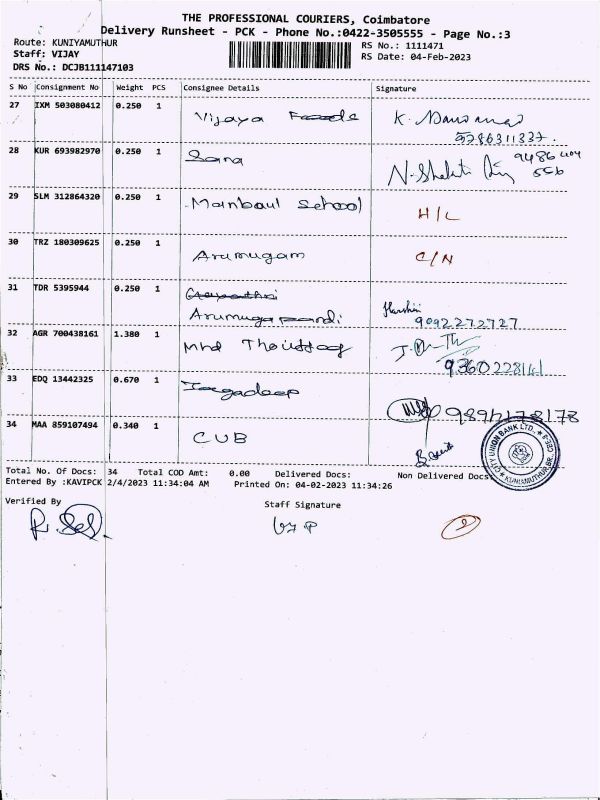 THE PROFESSIONAL COURIERS, Coimbatore
Delivery Runsheet - PCK - Phone No.:0422-3505555 - Page No.:3
Route: KUNIYAMUTHUR
Staff: VIJAY
DRS No.: DCJB111147103
RS No.: 1111471
RS Date: 04-Feb-2023
S No Consignment No Weight PCS Consignee Details Signature
27 IXM 503080412 0.250 1 Vijaya Foods K.
9786311337.
28 KUR 693982970 0.250 1 Sana N. Shakti 9486404
556
29 SLM 312864320 0.250 1 Manbaul School H/L
30 TRZ 180309625 0.250 1 Arumugam C/N
31 TDR 5395944 0.250 1
Arumugapandi Harshini
9092272727
32 AGR 700438161 1.380 1 Mhd
33 EDQ 13442325 0.670 1 Jagadeep
34 MAA 859107494 0.340 1 CUB
CITY UNION BANK LTD., CBE-8
KUNIAMUTHUR BR.
Total No. Of Docs: 34 Total COD Amt: 0.00 Delivered Docs: Non Delivered Docs:
Entered By :KAVIPCK 2/4/2023 11:34:04 AM Printed On: 04-02-2023 11:34:26
Verified By Staff Signature
2